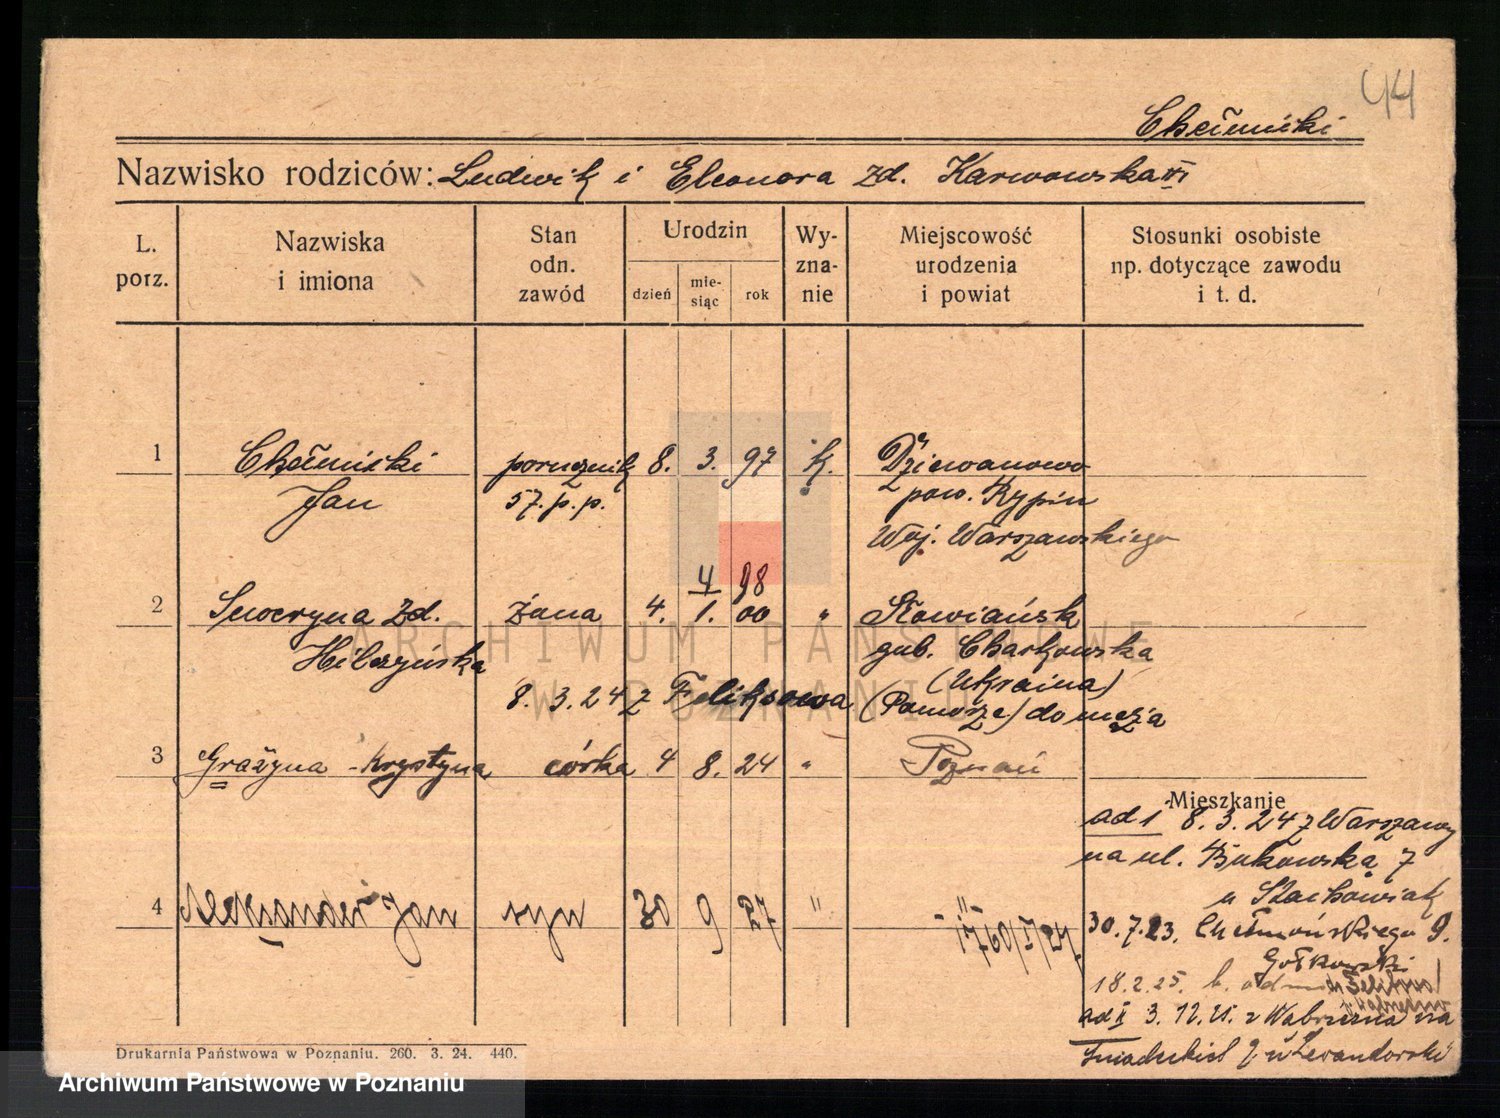 44
Chełmicki
Nazwisko rodziców: Ludwik i Eleonora zd. Karwowska
L. porz.
Nazwiska i imiona
Stan odn. zawód
Urodzin
dzień
mie- siąc
rok
Wy- zna- nie
Miejscowość urodzenia i powiat
Stosunki osobiste np. dotyczące zawodu i t. d.
1 Chełmicki porucznik 8. 3. 97 k. Dziewanowo
Jan 57. p. p. pow. Rypin
Woj. Warszawskiego
4 98
2 Seweryna zd. żona 4. 1. 00 " Słowiańsk
Hilczyńska gub. Charkowska
(Ukraina)
8. 3. 24 z Feliksowa (Pomorze) do męża
3 Grażyna - Krystyna córka 4 8. 24 " Poznań
Mieszkanie
ad 1 8. 3. 24 z Warszawy
na ul. Bukowska 7
u Stachowiak
4 Aleksander Jan syn 30 9 27 " - " -
30. 7. 23. Chełmońskiego 9.
Gołkowski
18. 2. 25.
ad II 3. 12. 25. z Wąbrzeźna na
Śniadeckich
Drukarnia Państwowa w Poznaniu. 260. 3. 24. 440.
ARCHIWUM PAŃSTWOWE
W POZNANIU
Archiwum Państwowe w Poznaniu